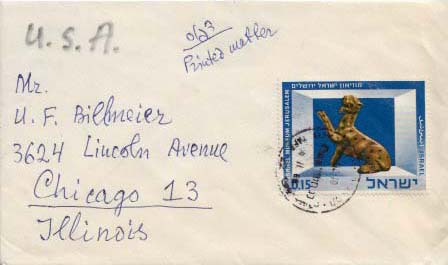 U.S.A.
0/23
Printed matter
Mr.
U. F. Billmeier
3624 Lincoln Avenue
Chicago 13
Illinois
מוזיאון ישראל ירושלים
ISRAEL MUSEUM JERUSALEM
ISRAEL
0.15 ישראל